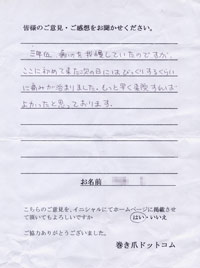 皆様のご意見・ご感想をお聞かせください。
三年位、痛いのを我慢していたのですが、
ここに初めて来た次の日にはびっくりするぐらい
に痛みが治まりました。もっと早く来院すれば
よかったと思っております。
お名前
こちらのご意見を、イニシャルにてホームページに掲載させ
て頂いてもよろしいですか はい・いいえ
ご協力ありがとうございました。
巻き爪ドットコム